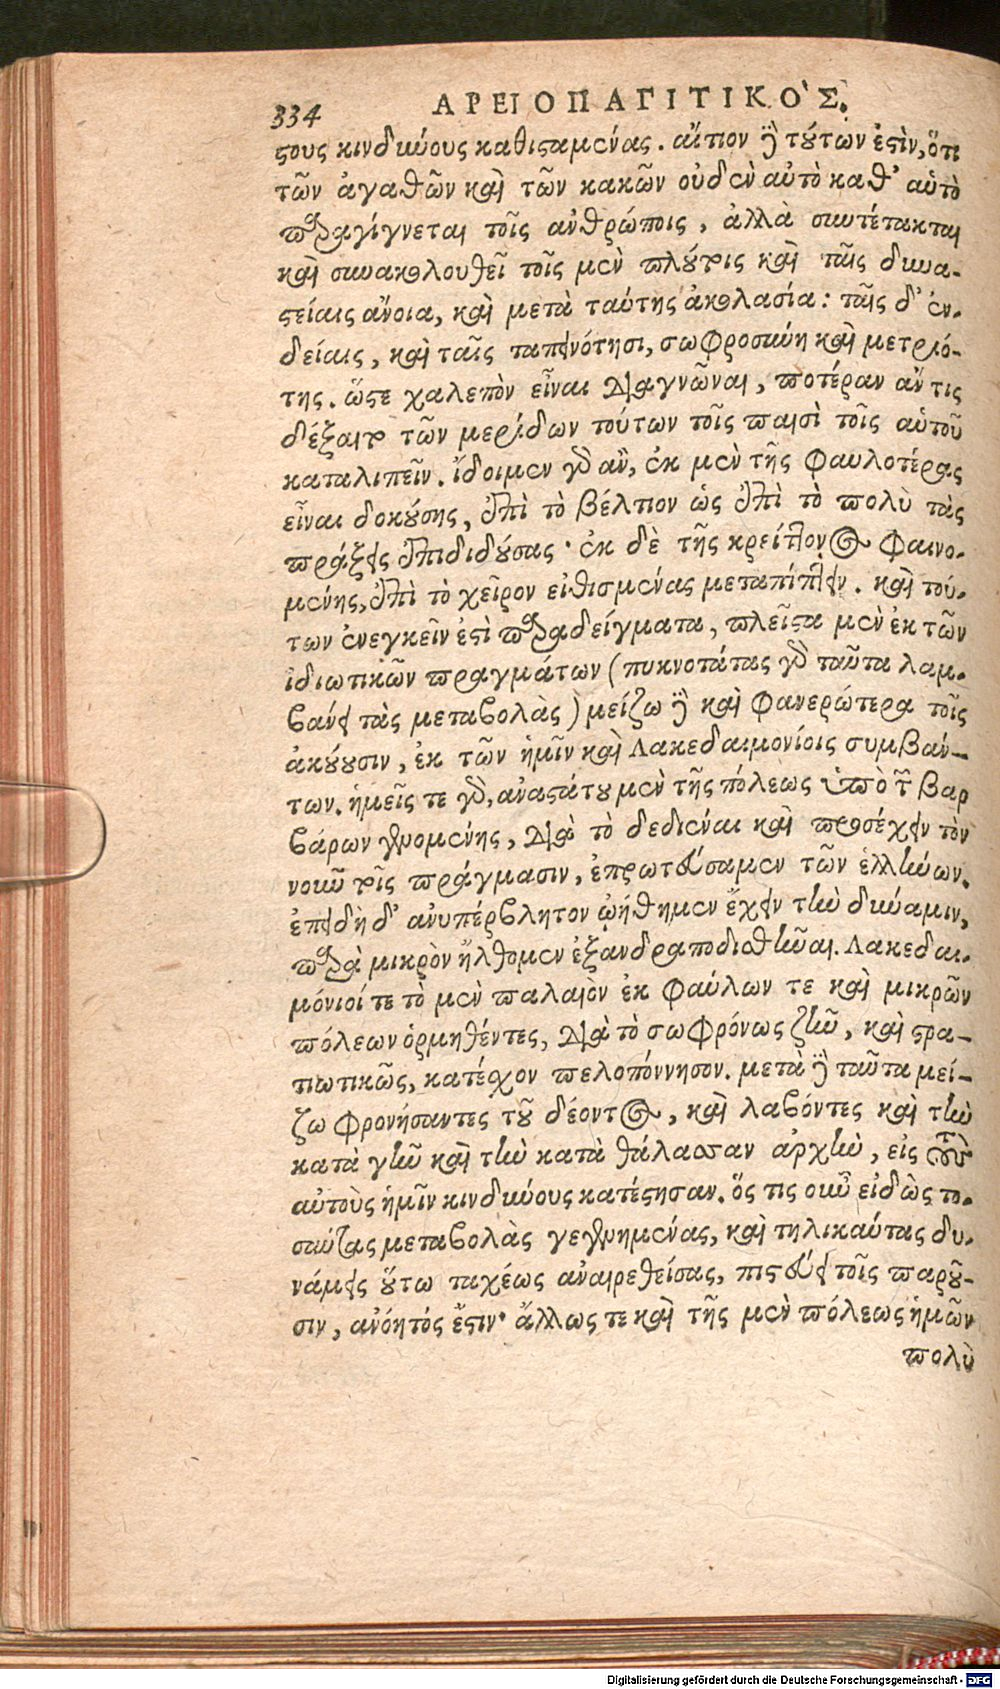 334 ΑΡΕΙΟΠΑΓΙΤΙΚΟ'Σ.
στους κινδύνους καθισταμένας. αἴτιον δὲ τούτων ἐστὶν, ὅτι
τῶν ἀγαθῶν καὶ τῶν κακῶν οὐδὲν αὐτὸ καθ' αὑτὸ
παραγίγνεται τοῖς ἀνθρώποις, ἀλλὰ συντέτακται
καὶ συνακολουθεῖ τοῖς μὲν πλούτοις καὶ ταῖς δυνα-
στείαις ἄνοια, καὶ μετὰ ταύτης ἀκολασία: ταῖς δ' ἐν-
δείαις, καὶ ταῖς ταπεινότησι, σωφροσύνη καὶ μετριό-
της. ὥστε χαλεπὸν εἶναι διαγνῶναι, ποτέραν ἄν τις
δέξαιτο τῶν μερίδων τούτων τοῖς παισὶ τοῖς αὑτοῦ
καταλιπεῖν. ἴδοιμεν γὰρ ἂν, ἐκ μὲν τῆς φαυλοτέρας
εἶναι δοκούσης, ἐπὶ τὸ βέλτιον ὡς ἐπὶ τὸ πολὺ τὰς
πράξεις ἐπιδιδούσας· ἐκ δὲ τῆς κρείττονος φαινο-
μένης, ἐπὶ τὸ χεῖρον εἰθισμένας μεταπίπτειν. καὶ τού-
των ἐνεγκεῖν ἐστὶ παραδείγματα, πλεῖστα μὲν ἐκ τῶν
ἰδιωτικῶν πραγμάτων (πυκνοτάτας γὰρ ταῦτα λαμ-
βάνει τὰς μεταβολὰς) μείζω δὲ καὶ φανερώτερα τοῖς
ἀκούουσιν, ἐκ τῶν ἡμῖν καὶ Λακεδαιμονίοις συμβάν-
των. ἡμεῖς τε γὰρ, ἀναστάτου μὲν τῆς πόλεως ὑπὸ τῶν βαρ
βάρων γενομένης, διὰ τὸ δεδιέναι καὶ προσέχειν τὸν
νοῦν τοῖς πράγμασιν, ἐπρωτεύσαμεν τῶν ἑλλήνων.
ἐπειδὴ δ' ἀνυπέρβλητον ᾠήθημεν ἔχειν τὴν δύναμιν,
παρὰ μικρὸν ἤλθομεν ἐξανδραποδισθῆναι. Λακεδαι-
μόνιοί τε τὸ μὲν παλαιὸν ἐκ φαύλων τε καὶ μικρῶν
πόλεων ὁρμηθέντες, διὰ τὸ σωφρόνως ζῆν, καὶ στρα-
τιωτικῶς, κατέσχον πελοπόννησον. μετὰ δὲ ταῦτα μεί-
ζω φρονήσαντες τοῦ δέοντος, καὶ λαβόντες καὶ τὴν
κατὰ γῆν καὶ τὴν κατὰ θάλασσαν ἀρχὴν, εἰς τοὺς
αὐτοὺς ἡμῖν κινδύνους κατέστησαν. ὅς τις οὖν εἰδὼς το-
σαύτας μεταβολὰς γεγενημένας, καὶ τηλικαύτας δυ-
νάμεις οὕτω ταχέως ἀναιρεθείσας, πιστεύει τοῖς παροῦ-
σιν, ἀνόητός ἐστιν· ἄλλως τε καὶ τῆς μὲν πόλεως ἡμῶν
πολὺ
Digitalisierung gefördert durch die Deutsche Forschungsgemeinschaft - DFG